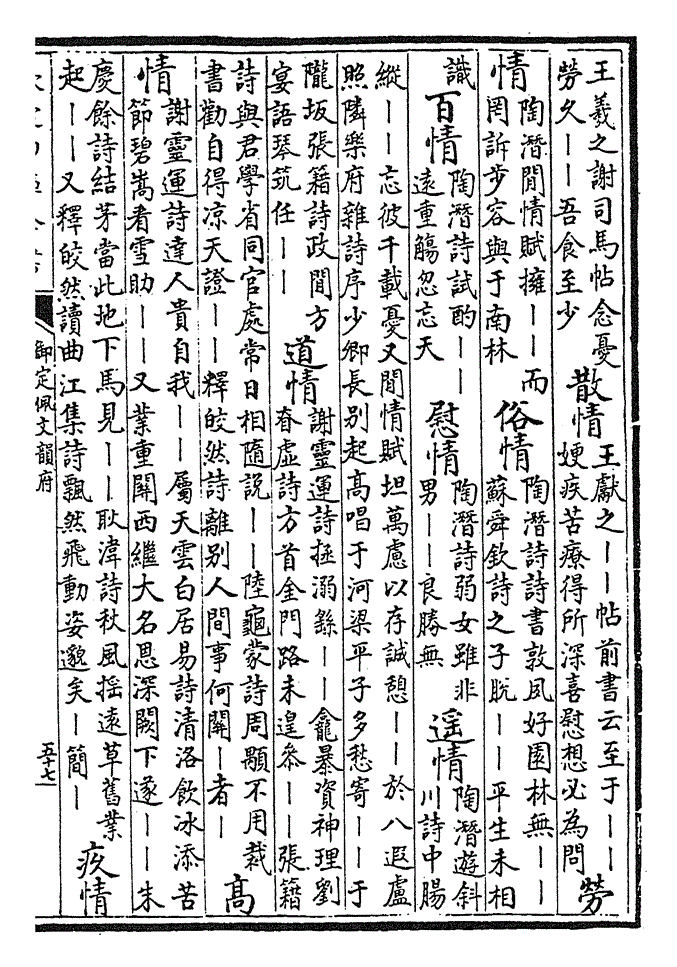 王羲之謝司馬帖念憂勞久——吾食至少　散情　王獻之——帖前書云至于——㛐疾苦療得所深喜慰想必為問　勞
情　陶潛閒情賦擁——而罔訴步容與于南林　俗情　陶潛詩詩書敦夙好園林無——蘇舜欽詩之子脫——平生未相
識　百情　陶潛詩試酌——遠重觴忽忘天　慰情　陶潛詩弱女雖非男——良勝無　遥情　陶潛遊斜川詩中腸
縱——忘彼千載憂又閒情賦坦萬慮以存誠憩——於八遐盧照隣樂府雜詩序少卿長別起高唱于河梁平子多愁寄——于
隴坂張籍詩政閒方宴語琴筑任——　道情　謝靈運詩拯溺繇——龕暴資神理劉眘虛詩方首金門路未遑叅——張籍
詩與君學省同官處常日相隨説——陸龜蒙詩周顒不用裁書勸自得凉天證——釋皎然詩離別人間事何關—者—　高
情　謝靈運詩達人貴自我——屬天雲白居易詩清洛飲冰添苦節碧嵩看雪助——又業重關西繼大名恩深闕下遂——朱
慶餘詩結茅當此地下馬見——耿湋詩秋風摇遠草舊業起——又釋皎然讀曲江集詩飄然飛動姿邈矣—簡—　疚情
御定佩文韻府
五十七